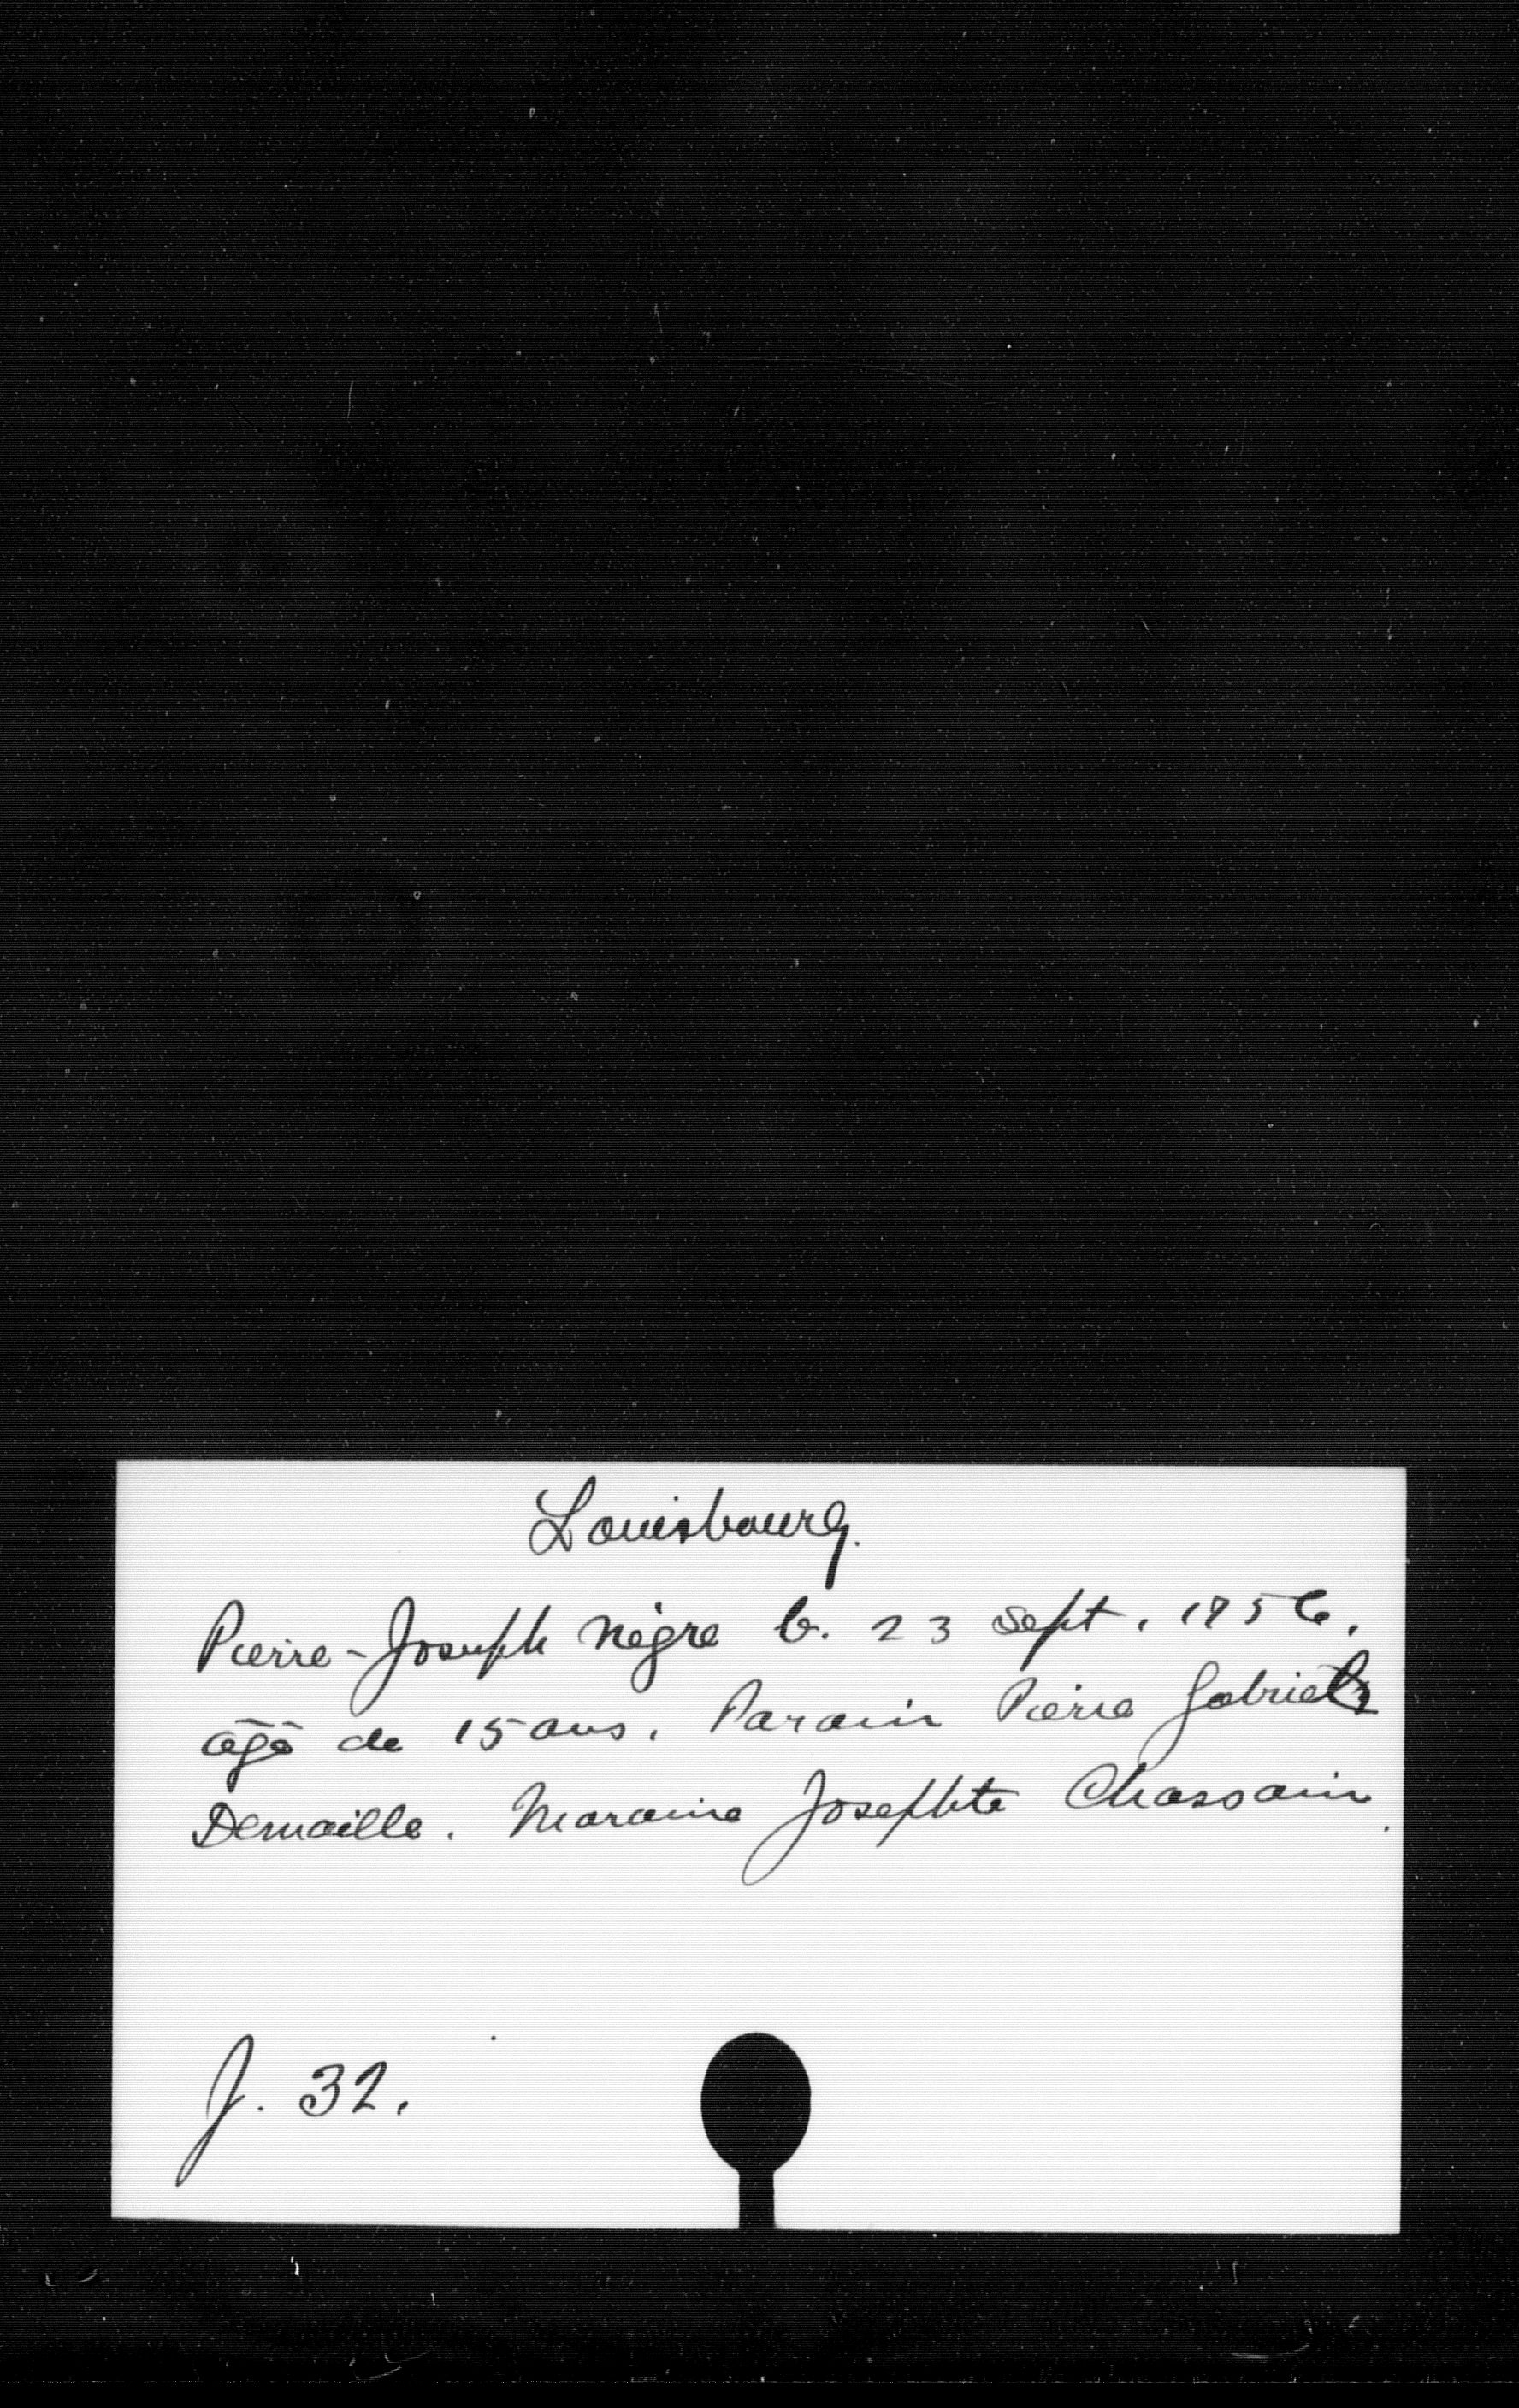 Louisbourg.
Pierre-Joseph nègre b. 23 sept. 1756.
âgé de 15 ans. Parain Pierre Gabriel
Demaille. Maraine Josephte Chassain.
J. 32.